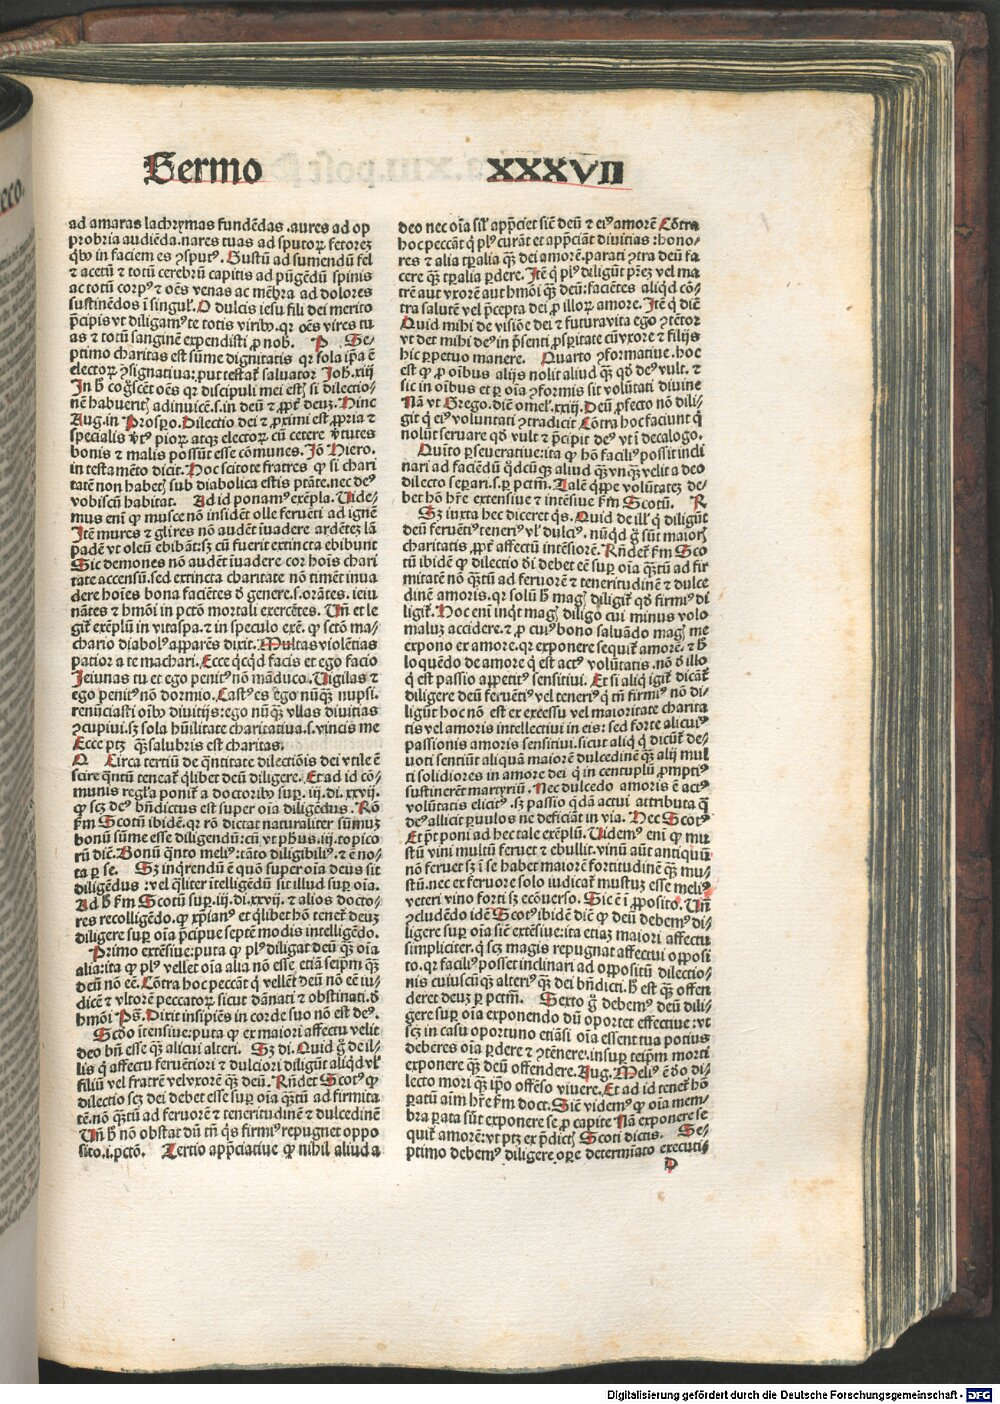 Sermo XXXVII
ad amaras lachrymas fundēdas .aures ad op
probria audiēda.nares tuas ad sputoꝝ fetorez
qͥbꝰ in faciem es ↄsputꝰ. Gustū ad sumendū fel
⁊ acetū ⁊ totū cerebrū capitis ad pūgēdū spinis
ac totū corpꝰ ⁊ oēs venas ac mēbra ad dolores
sustinēdos ī singul̓. O dulcis iesu fili dei merito
p̄cipis vt diligamꝰ te totis viribꝰ.qꝛ oēs vires tu
as ⁊ totū sanginē expendisti ꝓ nob. P Se-
ptimo charitas est sūme dignitatis qꝛ sola ip̄a ē
electoꝝ ↄsignatiua: put testat᷑ saluator Joh.xiij
In h̄ cogͦscēt oēs qꝛ discipuli mei estꝭ si dilectio-
nē habueritꝭ adinuicē.s.in deū ⁊ ꝓpt̄ deuz. Hinc
Aug.in Prospo. Dilectio dei ⁊ ꝓximi est ꝓpria ⁊
specialis v̓tꝰ pioꝝ atqꝫ electoꝝ cū cetere v̓tutes
bonis ⁊ malis possūt esse cōmunes. Jō Hiero.
in testamēto dicit. Hoc scitote fratres ꝙ si chari
tatē non habetꝭ sub diabolica estis ptāte.nec deꝰ
vobiscū habitat. Ad id ponamꝰ exēpla. Vide-
mus enī ꝙ musce nō insidēt olle feruēti ad ignē
Jtē mures ⁊ glires nō audēt iuadere ardētez lā
padē vt oleū ebibāt:sꝫ cū fuerit extincta ebibunt
Sic demones nō audēt iuadere cor hoīs chari
tate accensū.sed extincta charitate nō timēt inua
dere hoīes bona faciētes ð genere.s.orātes. ieiu
nātes ⁊ hmōi in pctō mortali exercētes. Vn̄ et le
git᷑ exēplū in vitaspa.⁊ in speculo exē. ꝙ sctō ma-
chario diabolꝰ apparēs dixit. Multas violētias
patior a te machari. Ecce qͥcqͥd facis et ego facio
Jeiunas tu et ego penitꝰ nō māduco. Vigilas ⁊
ego penitꝰ nō dormio. Castꝰ es ego nūqꝫ nupsi.
renūciasti oībꝰ diuitijs:ego nūqꝫ vllas diuitias
ↄcupiui.sꝫ sola hūilitate charitatiua.s.vincis me
Ecce ptꝫ qꝫ salubris est charitas.
Q Circa tertiū de qͣntitate dilectiōis dei vtile ē
scire qͣntū teneat᷑ qͥlibet deū diligere. Et ad id cō-
munis regl̓a ponit᷑ a doctoribꝰ suꝑ. iij.di.xxvij.
ꝙ scꝫ deꝰ bn̄dictus est super oīa diligēdus. Rō
ẜm Scotū ibidē.qꝛ rō dictat naturaliter sūmuz
bonū sūme esse diligendū:cū vt ph̄us.iij.topico
rū dic̄. Bonū qͣnto meliꝰ:tāto diligibiliꝰ.⁊ ē no-
ta ꝑ se. Sꝫ inqͥrendū ē quō super oīa deus sit
diligēdus :vel qͣliter ītelligēdū sit illud suꝑ oīa.
Ad h̄ ẜm Scotū suꝑ.iij.di.xxvij.⁊ alios docto-
res recolligēdo.ꝙ xp̄ianꝰ et qͥlibet hō tenet᷑ deuz
diligere suꝑ oīa p̄cipue septē modis intelligēdo.
Primo extēsiue:puta ꝙ plꝰ diligat deū qꝫ oīa
alia:ita ꝙ plꝰ vellet oīa alia nō esse etiā seip̄m qꝫ
deū nō eē. Cōtra hoc peccāt q̓ vellēt deū nō eē iu-
dicē ⁊ vltorē peccatoꝝ sicut dānati ⁊ obstinati.ð
hmōi Ps̄. Dixit insipiēs in corde suo nō est deꝰ.
Scdō ītensiue:puta ꝙ ex maiori affectu velit
deo bn̄ esse qꝫ alicui alteri. Sꝫ di. Quid g̊ de il-
lis q̓ affectu feruētiori ⁊ dulciori diligūt aliqͥd vl̓
filiū vel fratrē vel vxorē qꝫ deū. Rn̄det Scotꝰ ꝙ
dilectio scꝫ dei debet esse suꝑ oīa qꝫtū ad firmita
tē.nō qꝫtū ad feruorē ⁊ teneritudinē ⁊ dulcedinē
Vn̄ h̄ nō obstat dū tn̄ qͥs firmiꝰ repugnet oppo
sito.i.pctō. Tertio app̄ciatiue ꝙ nihil aliud a
deo nec oīa sil̓ app̄ciet sic̄ deū ⁊ eiꝰ amorē Cōtra
hoc peccāt q̓ plꝰ curāt et app̄ciāt diuitias :hono-
res ⁊ alia tꝑalia qꝫ dei amorē.parati ↄtra deū fa
cere qꝫ tꝑalia ꝑdere. Jtē q̓ plꝰ diligūt prēz vel ma
trē aut vxorē aut hmōi qꝫ deū:faciētes aliqͥd cō-
tra salutē vel p̄cepta dei ꝓ illoꝝ amore. Jtē q̓ dic̄
Quid mihi de visiōe dei ⁊ futura vita ego ↄtētor
vt det mihi deꝰ in p̄senti ꝓsꝑitate cū vxore ⁊ filijs
hic ꝑpetuo manere. Quarto ↄformatiue.hoc
est ꝙ ꝓ oībus alijs nolit aliud qꝫ qð deꝰ vult. ⁊
sic in oībus et ꝑ oīa ↄformis sit volūtati diuine
Nā vt Grego. dic̄ omel̓.xxij. Deū ꝓfecto nō dili-
git q̓ eiꝰ voluntati ↄtradicit Cōtra hoc faciunt q̓
nolūt seruare qð vult ⁊ p̄cipit deꝰ vt ī decalogo.
Quīto ꝑseueratiue:ita ꝙ hō faciliꝰ possit incli
nari ad faciēdū qͥdcūqꝫ aliud qꝫ vnqꝫ velit a deo
dilecto seꝑari.s.ꝑ pctm̄. Talē qͥppe volūtatez de-
bet hō hr̄e extensiue ⁊ intēsiue ẜm Scotū. R
Sꝫ iuxta hec diceret qͥs. Quid de ill̓ q̓ diligūt
deū feruētiꝰ teneriꝰ vl̓ dulciꝰ. nūqͥd g̊ sūt maiorꝭ
charitatis ꝓpt̄ affectū intēsiorē. Rn̄det᷑ ẜm Sco
tū ibidē ꝙ dilectio ði debet eē suꝑ oīa qꝫtū ad fir
mitatē nō qꝫtū ad feruorē ⁊ teneritudinē ⁊ dulce
dinē amoris. qꝛ solū h̄ magꝭ diligit᷑ qð firmiꝰ di
ligit᷑. Hoc enī inqͥt magꝭ diligo cui minus volo
maluz accidere.⁊ ꝓ cuiꝰ bono saluādo magꝭ me
expono ex amore.qꝛ exponere sequit᷑ amorē.⁊ h̄
loquēdo de amore q̓ est actꝰ volūtatis.nō ð illo
q̓ est passio appetitꝰ sensitiui. Et si aliq̓ igit᷑ dicāt᷑
diligere deū feruētiꝰ vel teneriꝰ q̓ tn̄ firmiꝰ nō di-
ligūt hoc nō est ex excessu vel maioritate charita
tis vel amoris intellectiui in eis:sed forte alicuiꝰ
passionis amoris sensitiui.sicut aliq̓ q̓ dicūt᷑ de-
uoti sentiūt aliquā maiorē dulcedinē qꝫ alij mul
ti solidiores in amore dei q̓ in centuplū ꝓmptiꝰ
sustinerēt martyriū. Nec dulcedo amoris ē actꝰ
volūtatis elicitꝰ.sꝫ passio qͣdā actui attributa qͣ
deꝰ allicit ꝑuulos ne deficiāt in via. Hec Scotꝰ
Et p̄t poni ad hec tale exēplū. Videmꝰ enī ꝙ mu
stū vini multū feruet ⁊ ebullit.vinū aūt antiquū
nō feruet sꝫ ī se habet maiorē fortitudinē qꝫ mu-
stū.nec ex feruore solo iudicat᷑ mustuz esse meliꝰ
veteri vino forti sꝫ ecōuerso. Sic ē ī ꝓposito. Vn̄
ↄcludēdo idē Scotꝰ ibidē dic̄ ꝙ deū debemꝰ di-
ligere suꝑ oīa sic̄ extēsiue:ita etiaz maiori affectu
simpliciter.q̓ scꝫ magis repugnat affectui opposi
to.qꝛ faciliꝰ posset inclinari ad oppositū dilectio-
nis cuiuscūqꝫ alteriꝰ qꝫ dei bn̄dicti.h̄ est qꝫ offen
deret deuz ꝑ pctm̄. Sexto g̊ debemꝰ deū dili-
gere suꝑ oīa exponendo dū oportet effectiue :vt
scꝫ in casu oportuno etiāsi oīa essent tua potius
deberes oīa ꝑdere ⁊ ↄtēnere.insuꝑ teip̄m morti
exponere qꝫ deū offendere. Aug. Meliꝰ ē ð o di-
lecto mori qꝫ ip̄o offēso viuere. Et ad id tenet᷑ hō
ꝑatū aīm hr̄e ẜm doct. Sic̄ videmꝰ ꝙ oīa mem-
bra ꝑata sūt exponere se ꝓ capite Nā exponere se
quit᷑ amorē:vt ptꝫ ex p̄dictꝭ Scoti dictis. Se-
ptimo debemꝰ diligere oꝑe determīato executi-
D
Digitalisierung gefördert durch die Deutsche Forschungsgemeinschaft - DFG